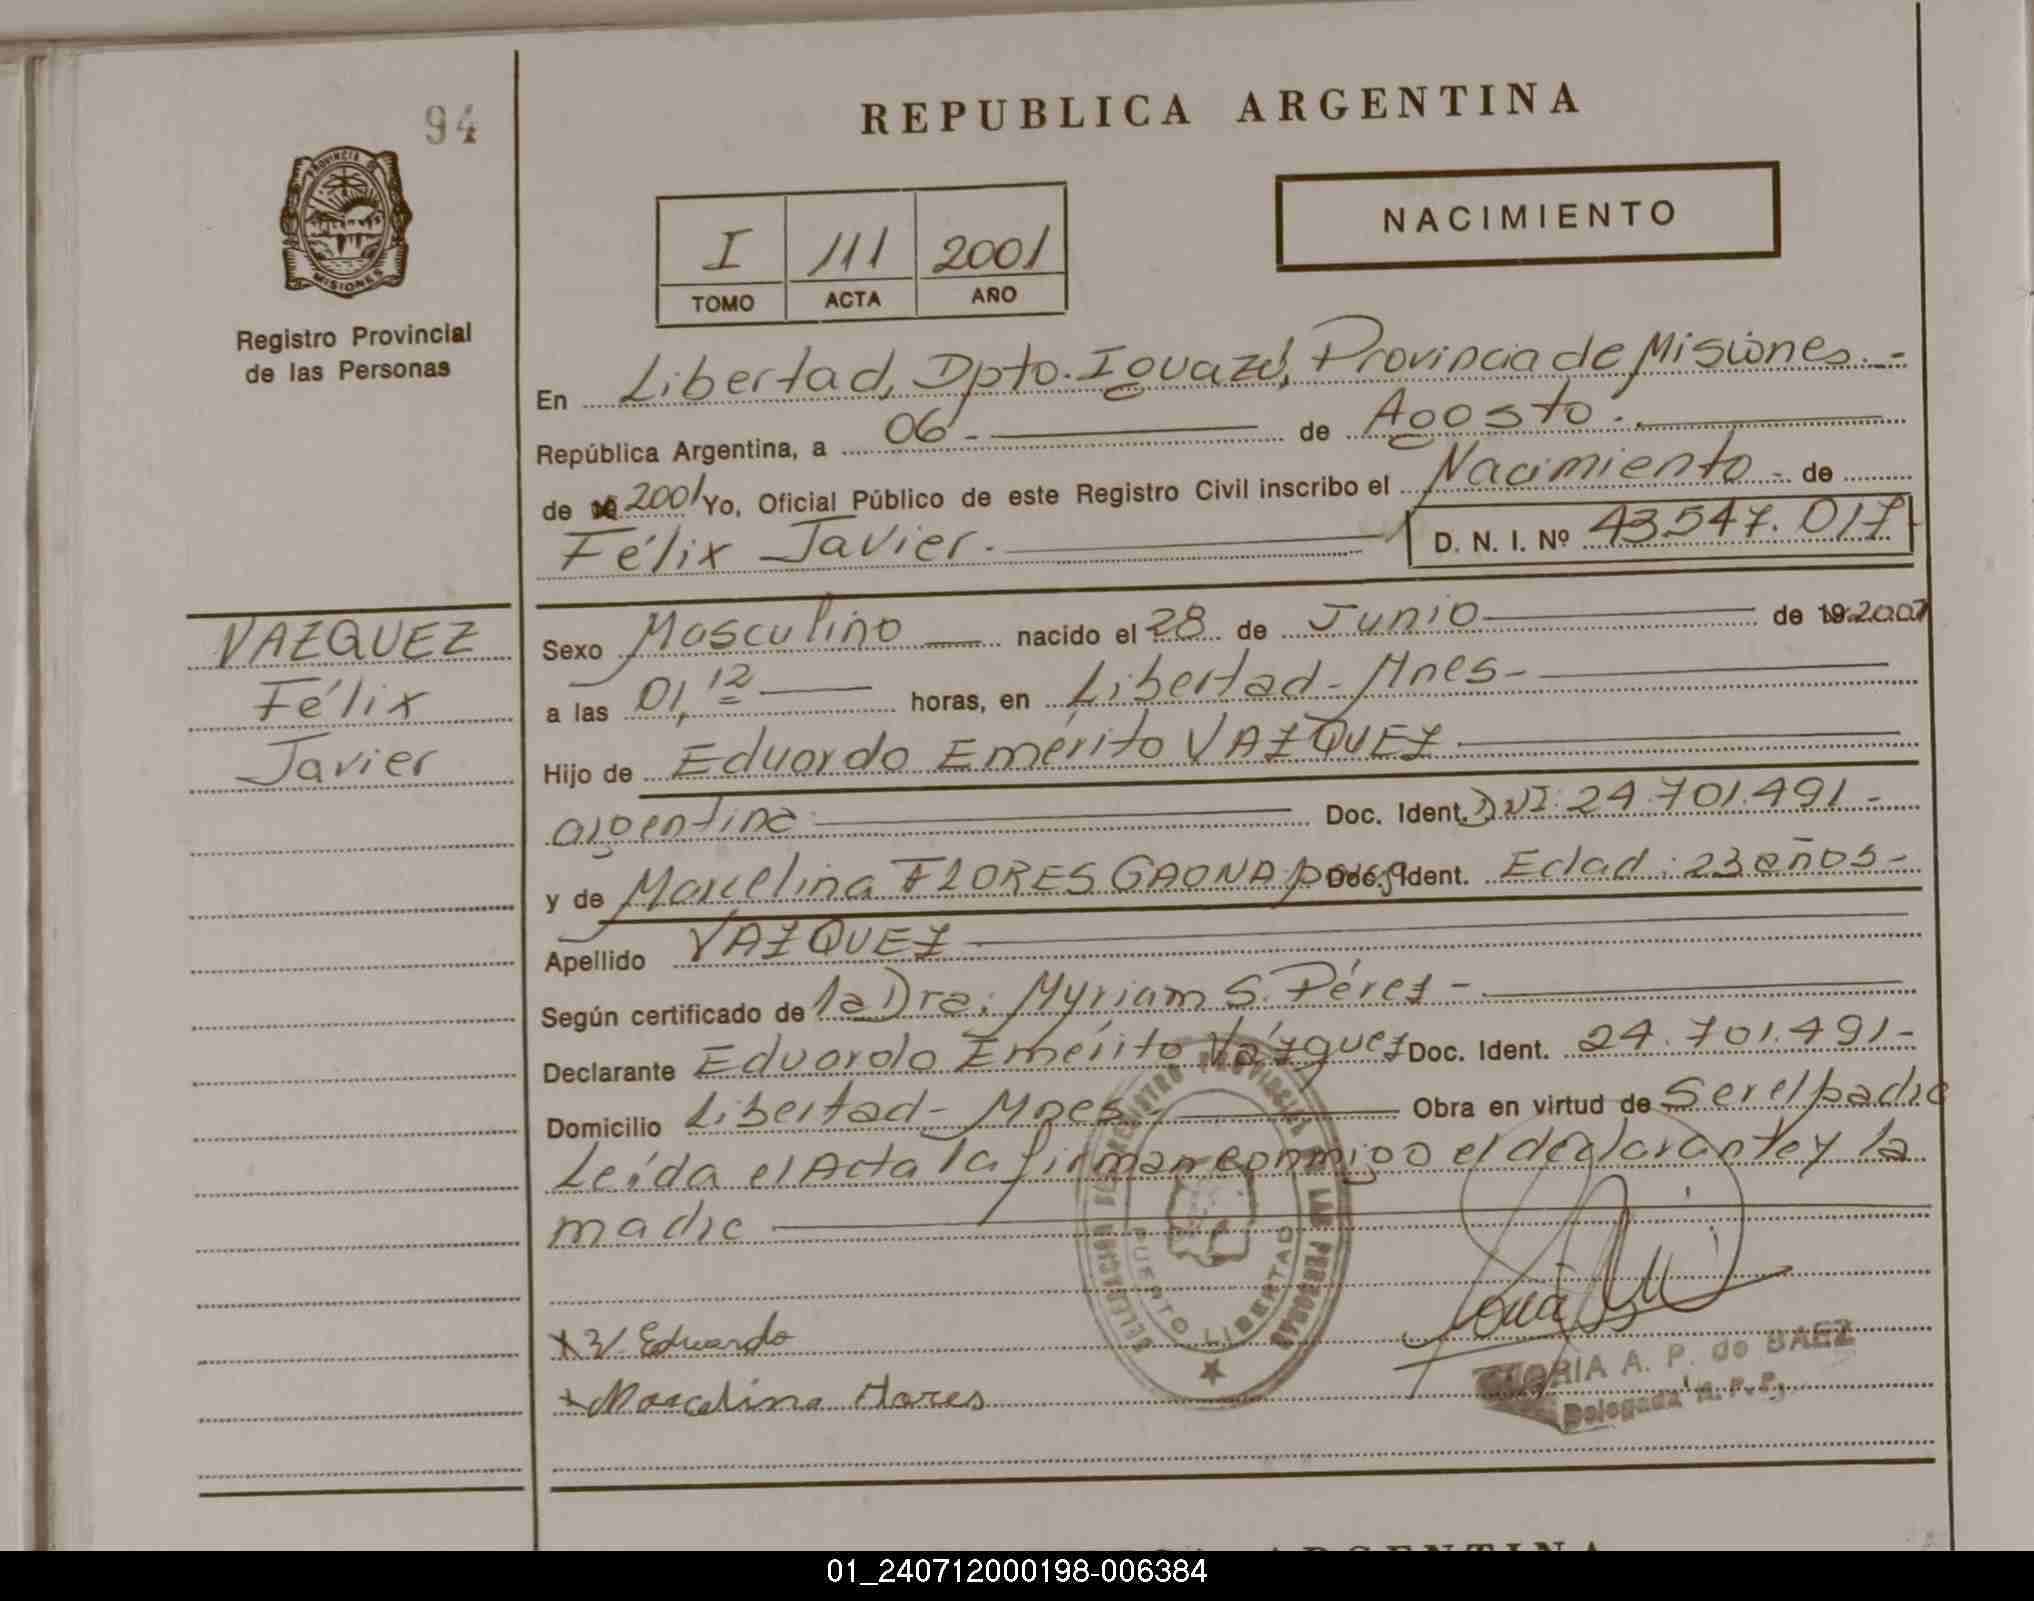 94
REPUBLICA ARGENTINA
NACIMIENTO
PROVINCIA DE
MISIONES
Registro Provincial
de las Personas
I 111 2001
TOMO ACTA AÑO
En Libertad, Dpto. Iguazú, Provincia de Misiones.-
República Argentina, a 06- de Agosto.
de 2001 Yo, Oficial Público de este Registro Civil inscribo el Nacimiento - de
Félix Javier.- D. N. I. Nº 43.547.017
VAZQUEZ
Félix
Javier
Sexo Masculino nacido el 28 de Junio de 19 2001
a las 01,12 horas, en Libertad - Mnes-
Hijo de Eduardo Emérito VAZQUEZ
argentino Doc. Ident. DNI: 24.701.491-
y de Marcelina FLORES GAONA Doc. Ident. Edad: 23 años-
Apellido VAZQUEZ
Según certificado de la Dra. Myriam S. Pérez -
Declarante Eduardo Emérito Vázquez Doc. Ident. 24.701.491-
Domicilio Libertad- Mnes- Obra en virtud de Ser el padre
Leída el Acta la firman conmigo el declarante y la
madre
x V. Eduardo
x Marcelina Flores
PUERTO LIBERTAD
A. P. de BAEZ
Delegada R. P. P.
REPUBLICA ARGENTINA
01_240712000198-006384